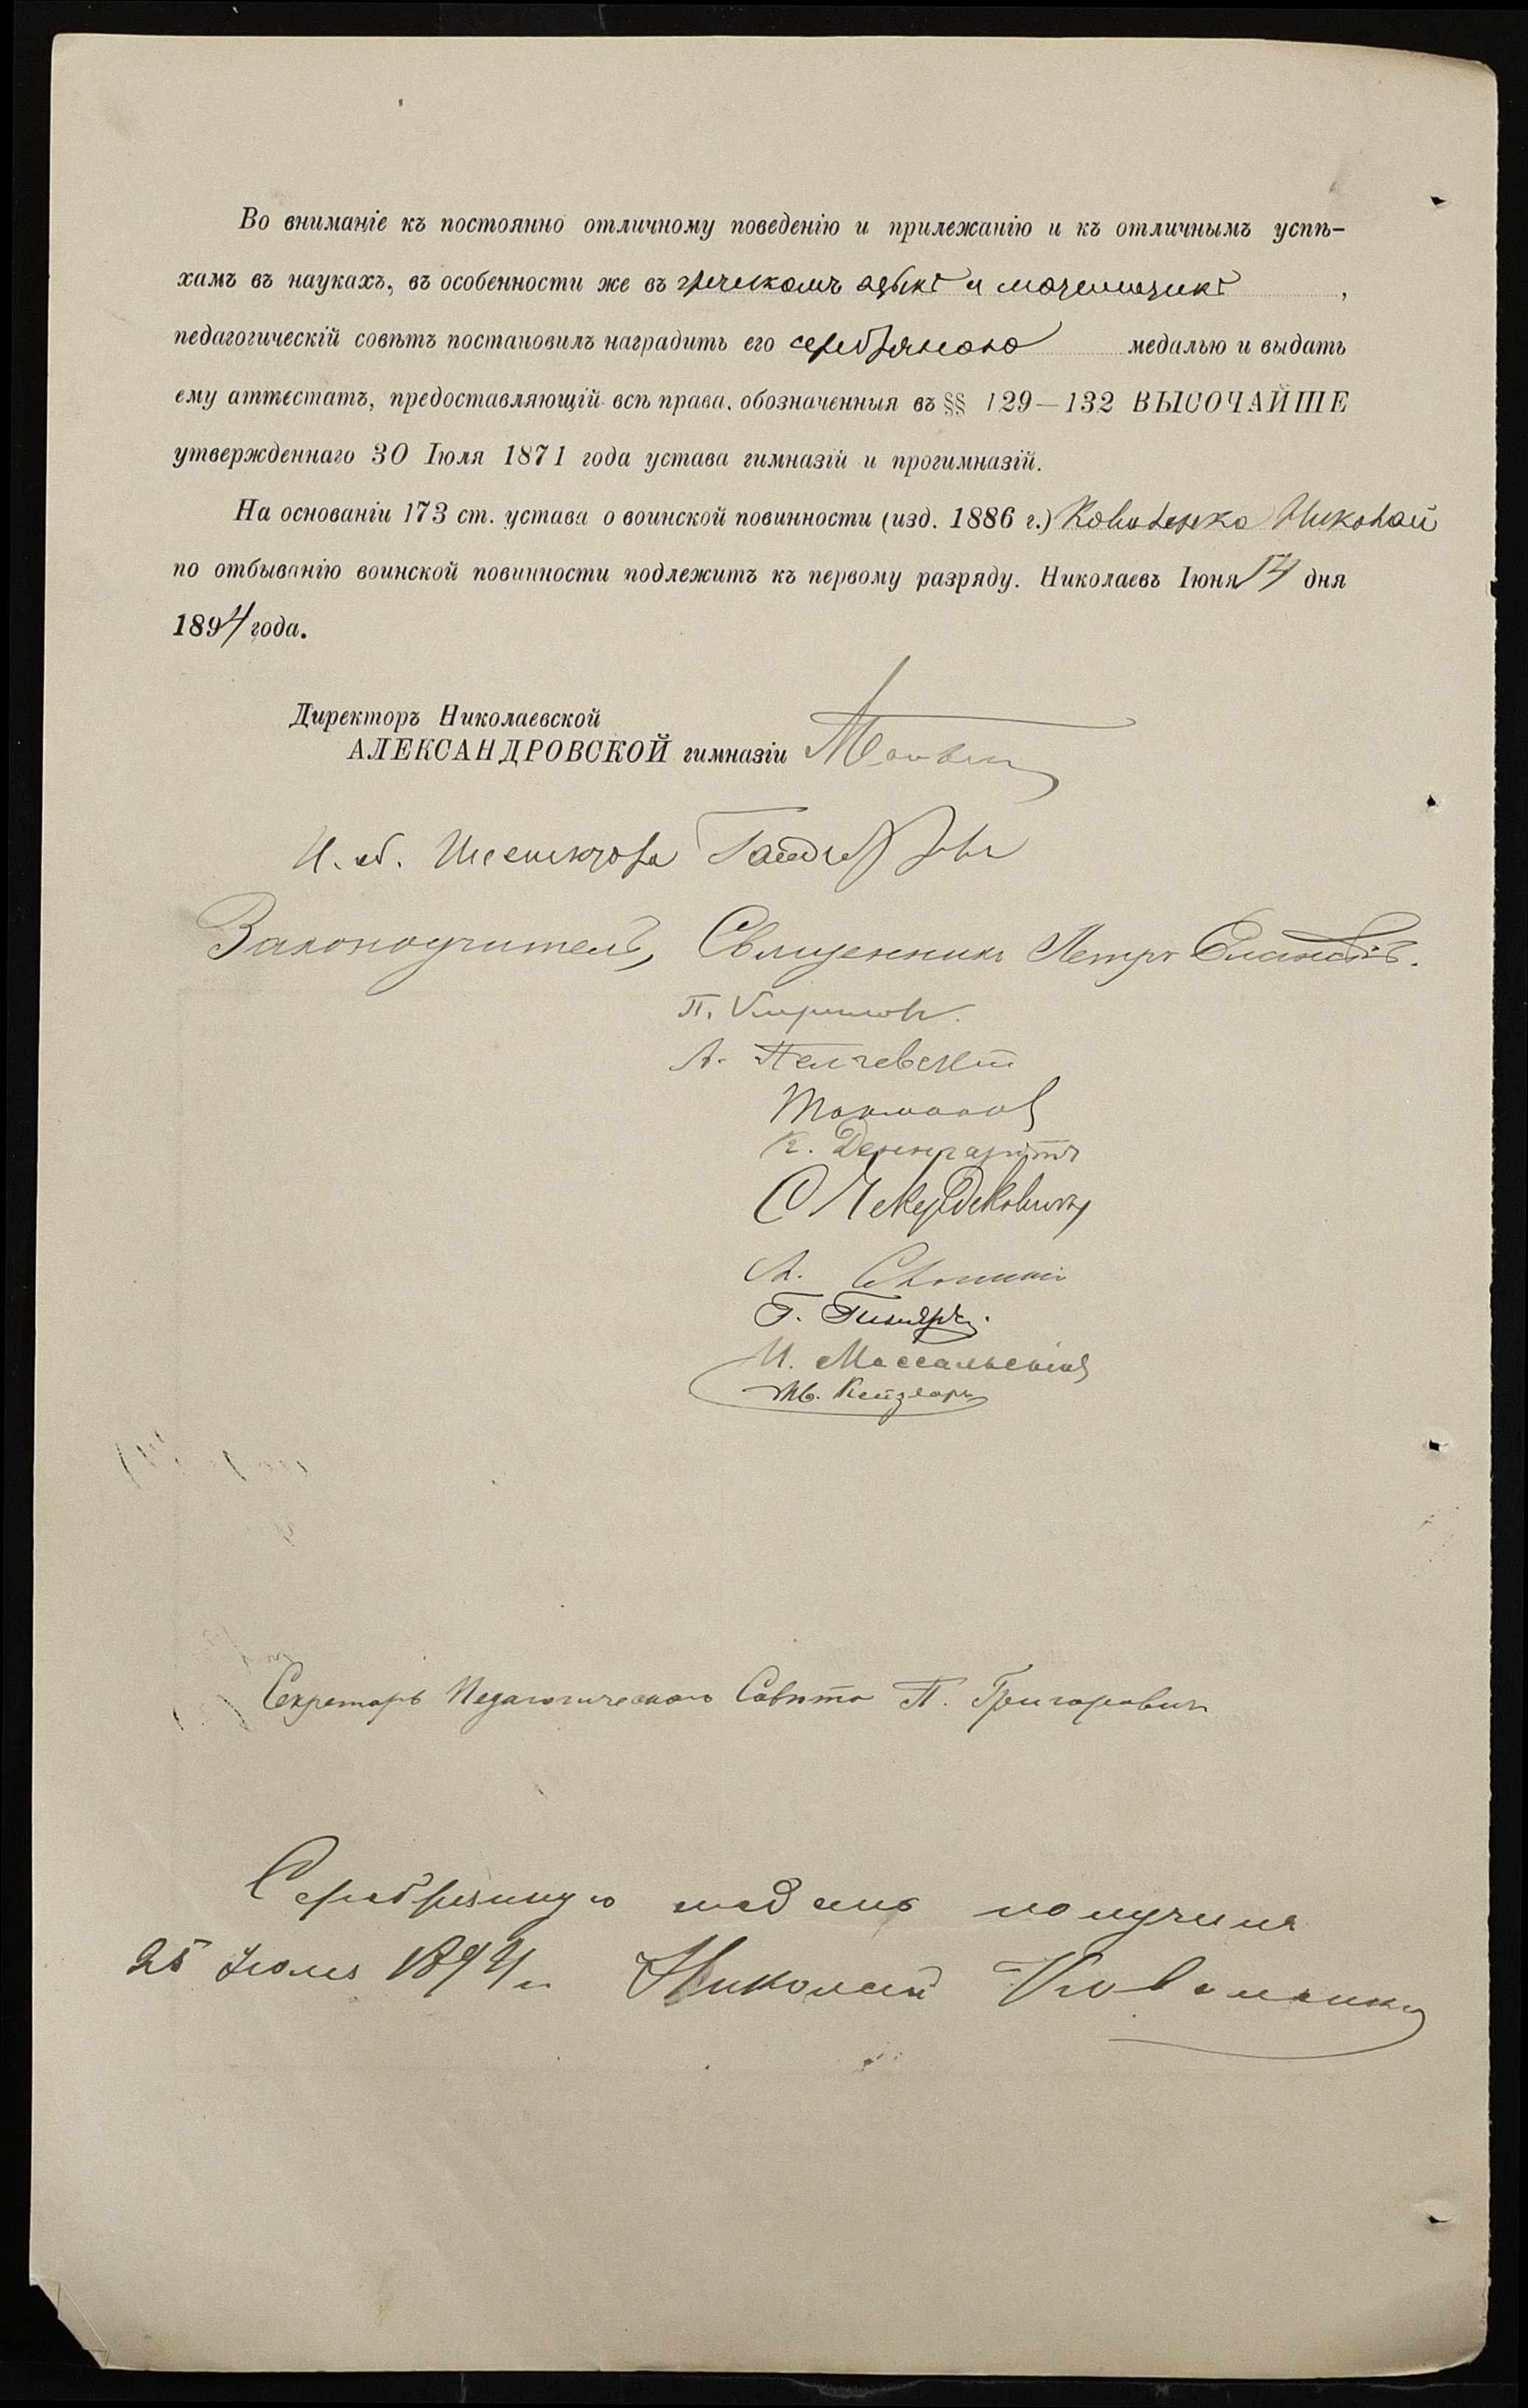 Во вниманіе къ постоянно отличному поведенію и прилежанію и къ отличнымъ успѣ-
хамъ въ наукахъ, въ особенности же въ греческомъ языкѣ и математикѣ ,
педагогическій совѣтъ постановилъ наградить его серебряною медалью и выдать
ему аттестатъ, предоставляющій всѣ права, обозначенныя въ §§ 129—132 ВЫСОЧАЙШЕ
утвержденнаго 30 Іюля 1871 года устава гимназій и прогимназій.
На основаніи 173 ст. устава о воинской повинности (изд. 1886 г.) Коваленко Николай
по отбыванію воинской повинности подлежитъ къ первому разряду. Николаевъ Іюня 14 дня
1894 года.
Директоръ Николаевской
АЛЕКСАНДРОВСКОЙ гимназіи
И. об. Инспектора
Законоучитель, Священникъ Петръ
П. Кирилловъ.
К.
А.
Г.
И. Массальскій
Секретарь Педагогическаго Совѣта П. Григоровичъ
Серебряную медаль получилъ
25 Іюля 1894 г. Николай Коваленко